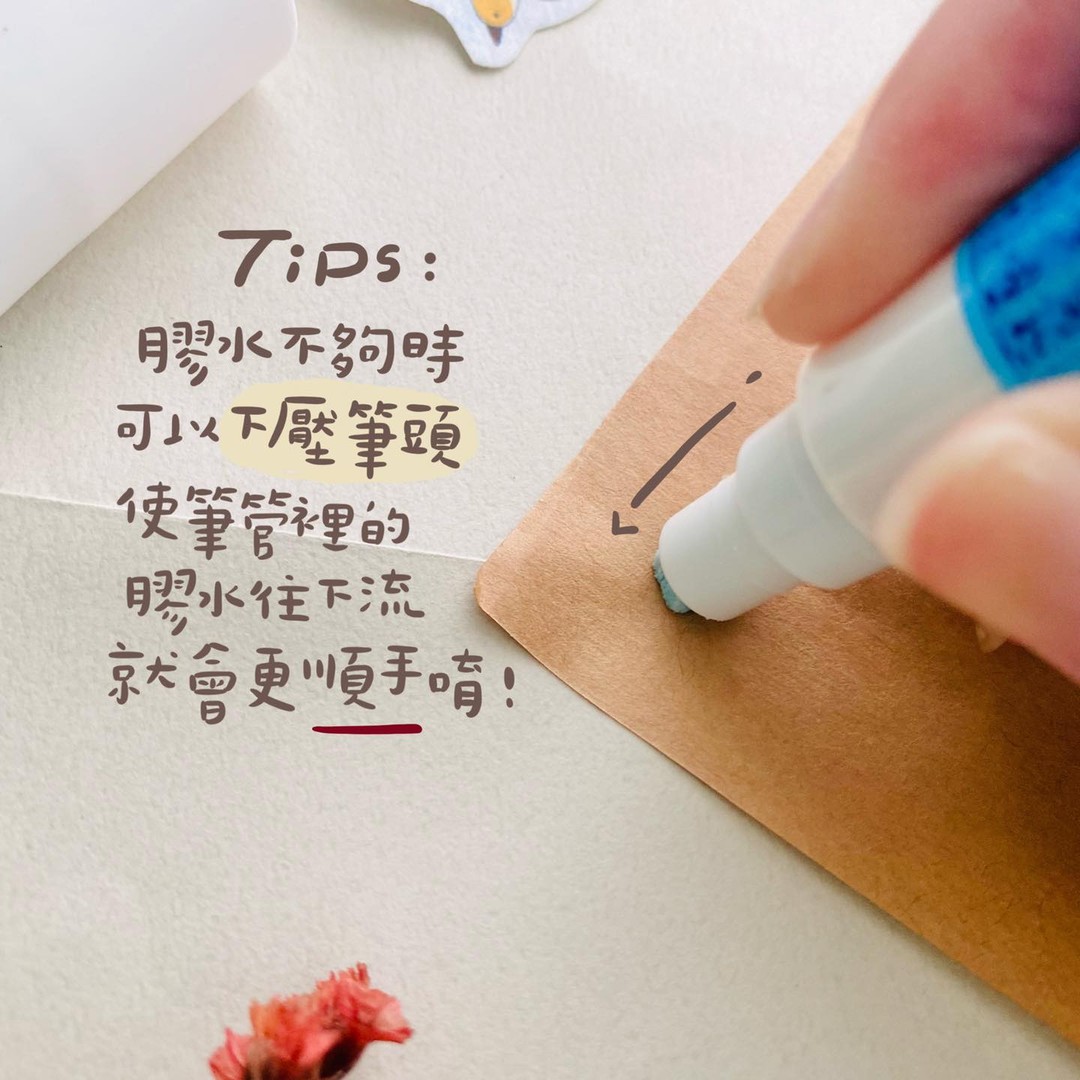 Tips:
膠水不夠時
可以下壓筆頭
使筆管裡的
膠水往下流
就會更順手唷!